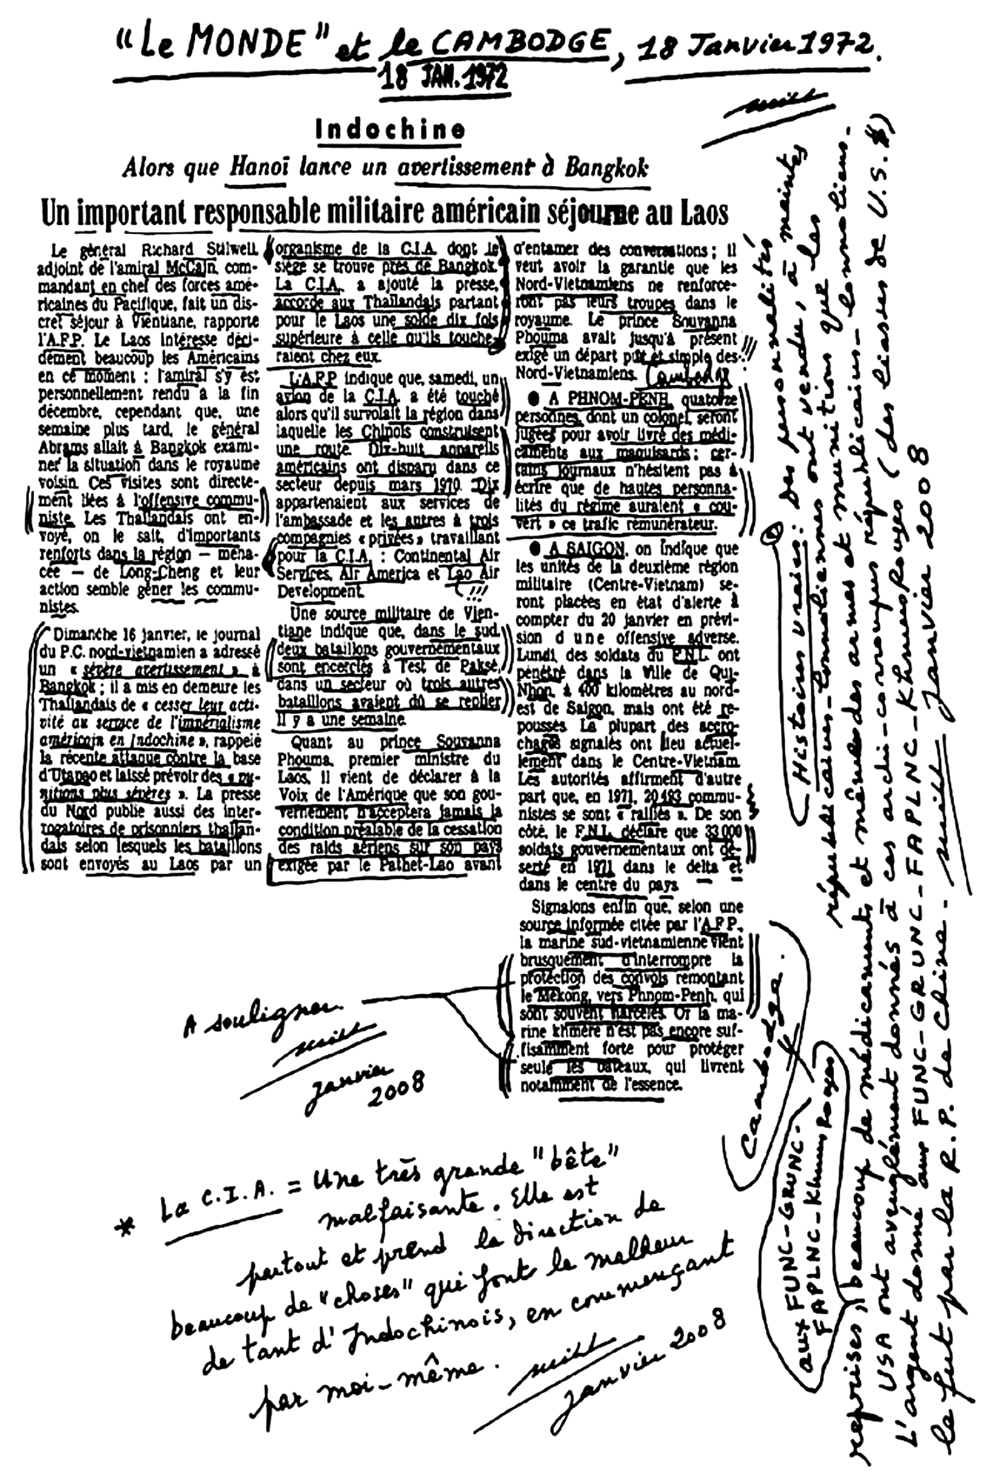 "Le MONDE" et le CAMBODGE, 18 Janvier 1972.
18 JAN. 1972
Indochine
Alors que Hanoï lance un avertissement à Bangkok
Un important responsable militaire américain séjourne au Laos
Le général Richard Stilwell,
adjoint de l'amiral McCain, com-
mandant en chef des forces amé-
ricaines du Pacifique, fait un dis-
cret séjour à Vientiane, rapporte
l'A.F.P. Le Laos intéresse déci-
dément beaucoup les Américains
en ce moment : l'amiral s'y est
personnellement rendu à la fin
décembre, cependant que, une
semaine plus tard, le général
Abrams allait à Bangkok exami-
ner la situation dans le royaume
voisin. Ces visites sont directe-
ment liées à l'offensive commu-
niste. Les Thaïlandais ont en-
voyé, on le sait, d'importants
renforts dans la région — mena-
cée — de Long-Cheng et leur
action semble gêner les commu-
nistes.
Dimanche 16 janvier, le journal
du P.C. nord-vietnamien a adressé
un « sévère avertissement » à
Bangkok ; il a mis en demeure les
Thaïlandais de « cesser leur acti-
vité au service de l'impérialisme
américain en Indochine », rappelé
la récente attaque contre la base
d'Utapao et laissé prévoir des « pu-
nitions plus sévères ». La presse
du Nord publie aussi des inter-
rogatoires de prisonniers thaïlan-
dais selon lesquels les bataillons
sont envoyés au Laos par un
organisme de la C.I.A. dont le
siège se trouve près de Bangkok.
La C.I.A., a ajouté la presse,
accorde aux Thaïlandais partant
pour le Laos une solde dix fois
supérieure à celle qu'ils touche-
raient chez eux.
L'A.F.P. indique que, samedi, un
avion de la C.I.A. a été touché
alors qu'il survolait la région dans
laquelle les Chinois construisent
une route. Dix-huit appareils
américains ont disparu dans ce
secteur depuis mars 1970. Dix
appartenaient aux services de
l'ambassade et les autres à trois
compagnies « privées » travaillant
pour la C.I.A. : Continental Air
Services, Air America et Lao Air
Development. !!!
Une source militaire de Vien-
tiane indique que, dans le sud,
deux bataillons gouvernementaux
sont encerclés à l'est de Paksé,
dans un secteur où trois autres
bataillons avaient dû se replier
il y a une semaine.
Quant au prince Souvanna
Phouma, premier ministre du
Laos, il vient de déclarer à la
Voix de l'Amérique que son gou-
vernement n'acceptera jamais la
condition préalable de la cessation
des raids aériens sur son pays
exigée par le Pathet-Lao avant
d'entamer des conversations ; il
veut avoir la garantie que les
Nord-Vietnamiens ne renforce-
ront pas leurs troupes dans le
royaume. Le prince Souvanna
Phouma avait jusqu'à présent
exigé un départ pur et simple des !!!
Nord-Vietnamiens.
● A PHNOM-PENH, quatorze
personnes, dont un colonel, seront
jugées pour avoir livré des médi-
caments aux maquisards ; cer-
tains journaux n'hésitent pas à
écrire que de hautes personna-
lités du régime auraient « cou-
vert » ce trafic rémunérateur.
● A SAIGON, on indique que
les unités de la deuxième région
militaire (Centre-Vietnam) se-
ront placées en état d'alerte à
compter du 20 janvier en prévi-
sion d'une offensive adverse.
Lundi, des soldats du F.N.L. ont
pénétré dans la ville de Qui-
Nhon, à 400 kilomètres au nord-
est de Saigon, mais ont été re-
poussés. La plupart des accro-
chages signalés ont lieu actuel-
lement dans le Centre-Vietnam.
Les autorités affirment d'autre
part que, en 1971, 20 493 commu-
nistes se sont « ralliés ». De son
côté, le F.N.L. déclare que 33 000
soldats gouvernementaux ont dé-
serté en 1971 dans le delta et
dans le centre du pays.
Signalons enfin que, selon une
source informée citée par l'A.F.P.,
la marine sud-vietnamienne vient
brusquement d'interrompre la
protection des convois remontant
le Mékong, vers Phnom-Penh, qui
sont souvent harcelés. Or la ma-
rine khmère n'est pas encore suf-
fisamment forte pour protéger
seule les bateaux, qui livrent
notamment de l'essence.
A souligner
janvier
2008
Cambodge.
* La C.I.A. = Une très grande "bête"
malfaisante. Elle est
partout et prend la direction de
beaucoup de "choses" qui font le malheur
de tant d'Indochinois, en commençant
par moi-même.
janvier 2008
Histoires vraies : Des personnalités
républicains-Lonnoliennes ont vendu, à maintes
reprises, beaucoup de médicaments et même des armes et munitions que les
aux FUNC-GRUNC-
FAPLNC-Khmers Rouges
USA ont aveuglément donnés à ces archi-corrompus républicains-Lonnoliens.
L'argent donné aux FUNC-GRUNC-FAPLNC-Khmers Rouges (des liasses de U.S.$)
le fut par la R.P. de Chine.
Janvier 2008